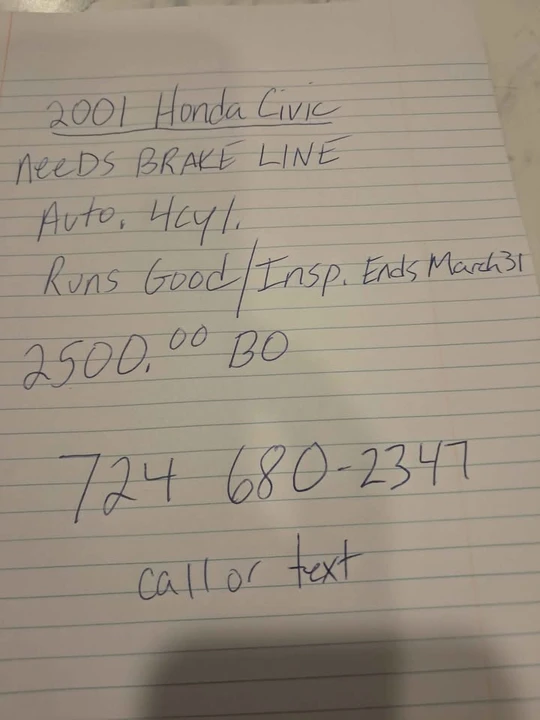 2001 Honda Civic
NeeDS BRAKE LINE
Auto. 4cyl.
Runs Good/Insp. Ends March 31
2500.00 BO
724 680-2347
call or text